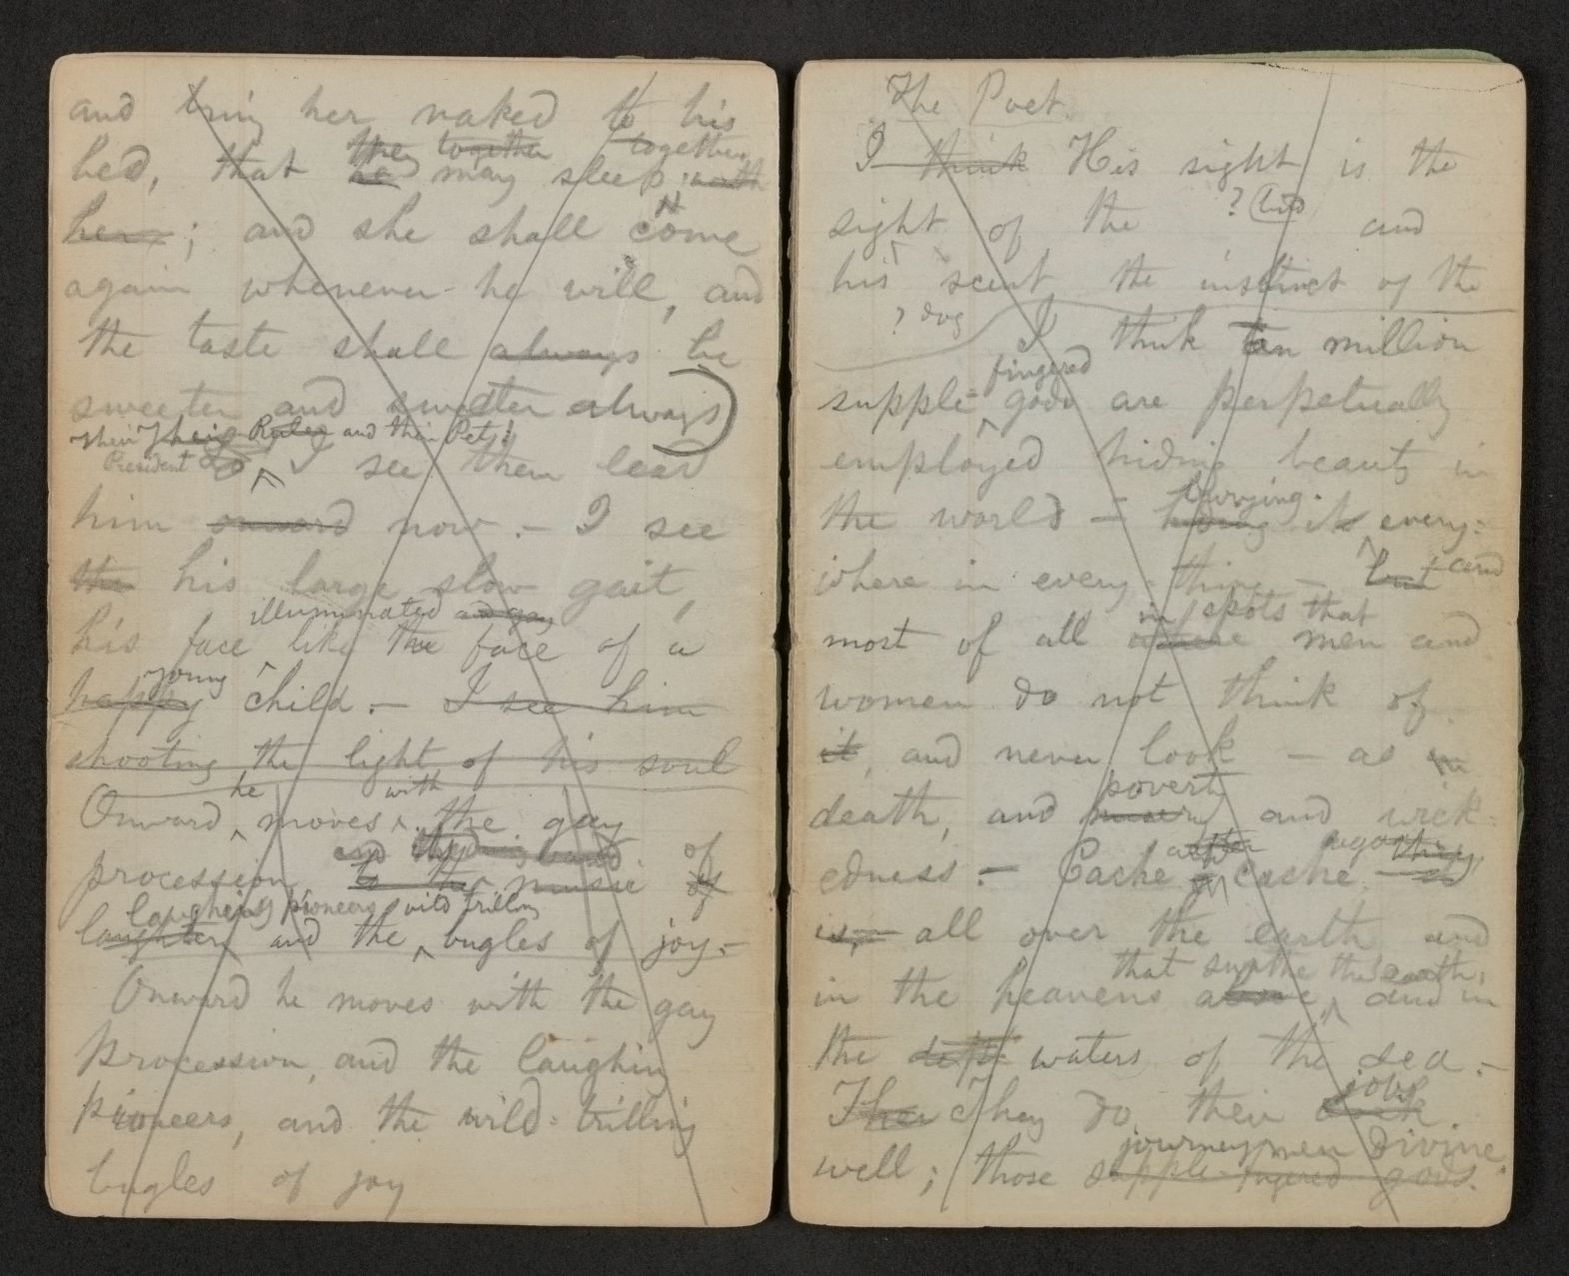 and bring her naked to his
they together together
bed, that he may sleep with
her; and she shall come
again whenever he will, and
the taste shall always be
sweeter and sweeter always
Their Their Ruler and their Pet!
President I see them lead
him onward now. – I see
the his large slow gait,
illuminated and gay
his face like the face of a
young
happy child. – I see him
shooting the light of his soul
he with
Onward moves the gay
and the of
procession to the music of
laughing pioneers wild trilling
laughter and the bugles of joy. –
Onward he moves with the gay
procession, and the laughing
pioneers, and the wild-trilling
bugles of joy
The Poet.
I think His sight is the
? bird
sight of the and
his scent the instinct of the
? dog
I think ten million
fingered
supple gods are perpetually
employed hiding beauty in
burying
the world – hiding it every-
where in every thing – but and
in spots that
most of all where men and
women do not think of
it, and never look – as in
poverty
death, and misery and wick-
after again
edness. – Cache cache
is, all over the earth and
that swathe the earth,
in the heavens above, and in
the depth waters of the sea. –
jobs
Their They do their work
journeymen divine.
well; those supple-fingered gods.